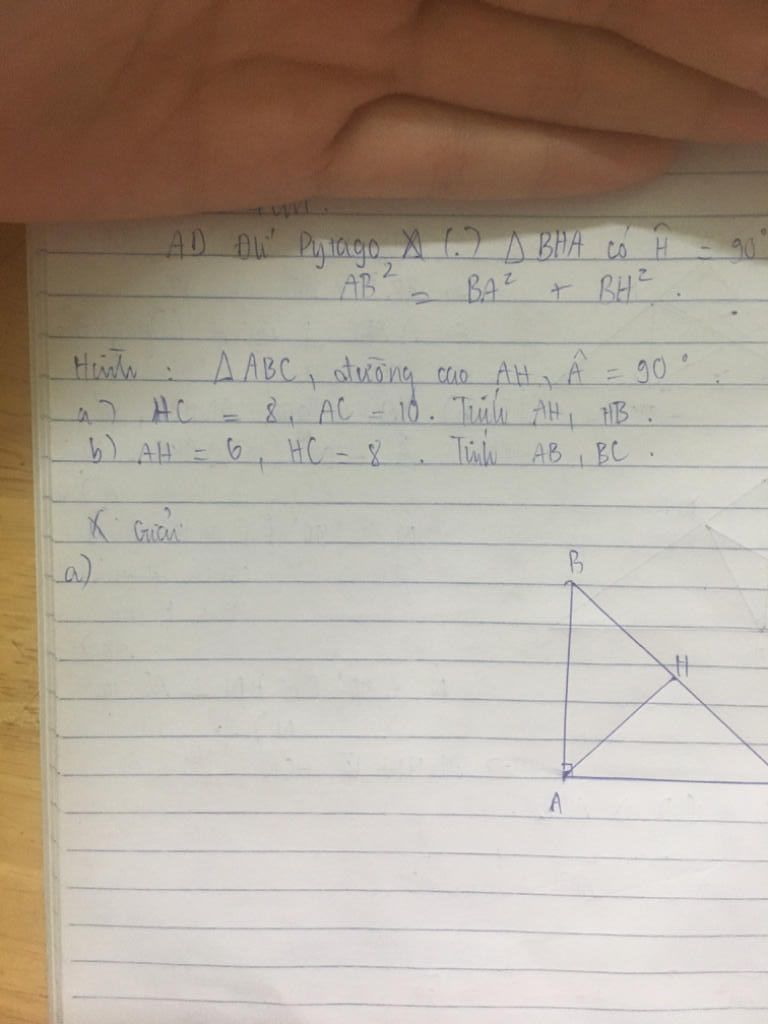 AD ĐL Pytago (.) Δ BHA có Ĥ = 90°
AB² = BA² + BH².
Hình : Δ ABC, đường cao AH, Â = 90°.
a) HC = 8, AC = 10. Tính AH, HB.
b) AH = 6, HC = 8. Tính AB, BC.
Giải
a)
B
H
A